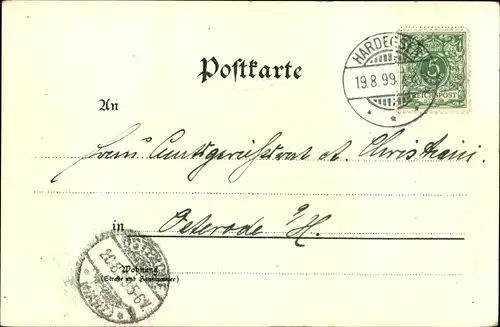 Postkarte
HARDEGSEN
19.8.99
5
REICHSPOST
An
Herrn Amtsgerichtsrat A. Christiani.
in Osterode a/H.
OSTERODE
20.8.99 5-6V.
(HARZ)
Wohnung
(Straße und Hausnummer)